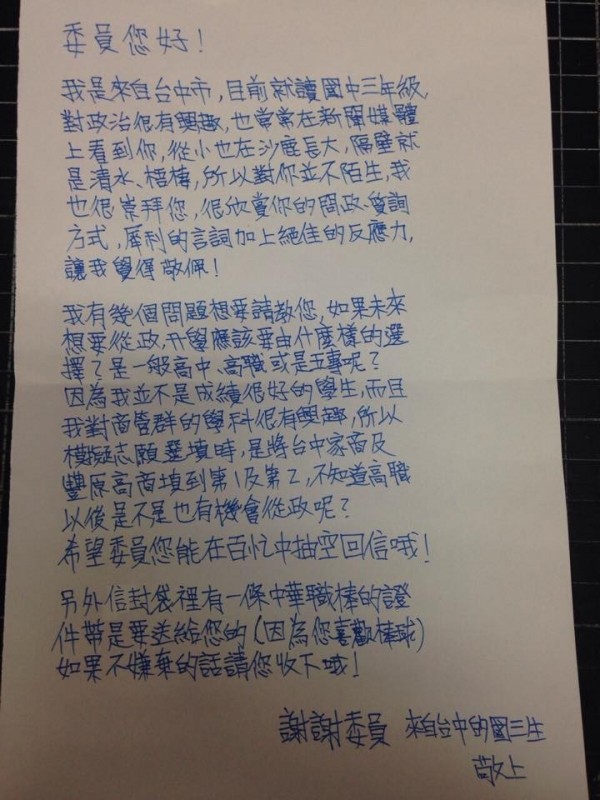 委員您好！
我是來自台中市，目前就讀國中三年級，
對政治很有興趣，也常常在新聞媒體
上看到你，從小也在沙鹿長大，隔壁就
是清水、梧棲，所以對你並不陌生，我
也很崇拜您，很欣賞你的問政、質詢
方式，犀利的言詞加上絕佳的反應力，
讓我覺得敬佩！
我有幾個問題想要請教您，如果未來
想要從政，升學應該要由什麼樣的選
擇？是一般高中、高職或是五專呢？
因為我並不是成績很好的學生，而且
我對商管群的學科很有興趣，所以
模擬志願選填時，是將台中家商及
豐原高商填到第1及第2，不知道高職
以後是不是也有機會從政呢？
希望委員您能在百忙中抽空回信哦！
另外信封袋裡有一條中華職棒的證
件帶是要送給您的（因為您喜歡棒球）
如果不嫌棄的話請您收下哦！
謝謝委員 來自台中的國三生
敬上